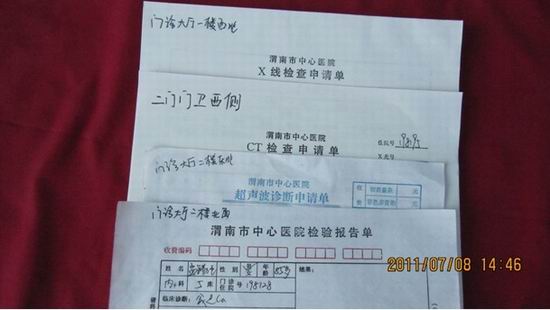 门诊大厅一楼西北
渭南市中心医院
X线检查申请单
二门门卫西侧
渭南市中心医院
CT检查申请单
住院号
X光号
门诊大厅二楼东北
渭南市中心医院
超声波诊断申请单
收
元
元
门诊大厅二楼北面
渭南市中心医院检验报告单
收费编码
姓名 性别 男 年龄 85岁
结果:
内 科 5 床 门诊住院号 195128
临床诊断:
2011/07/08 14:46